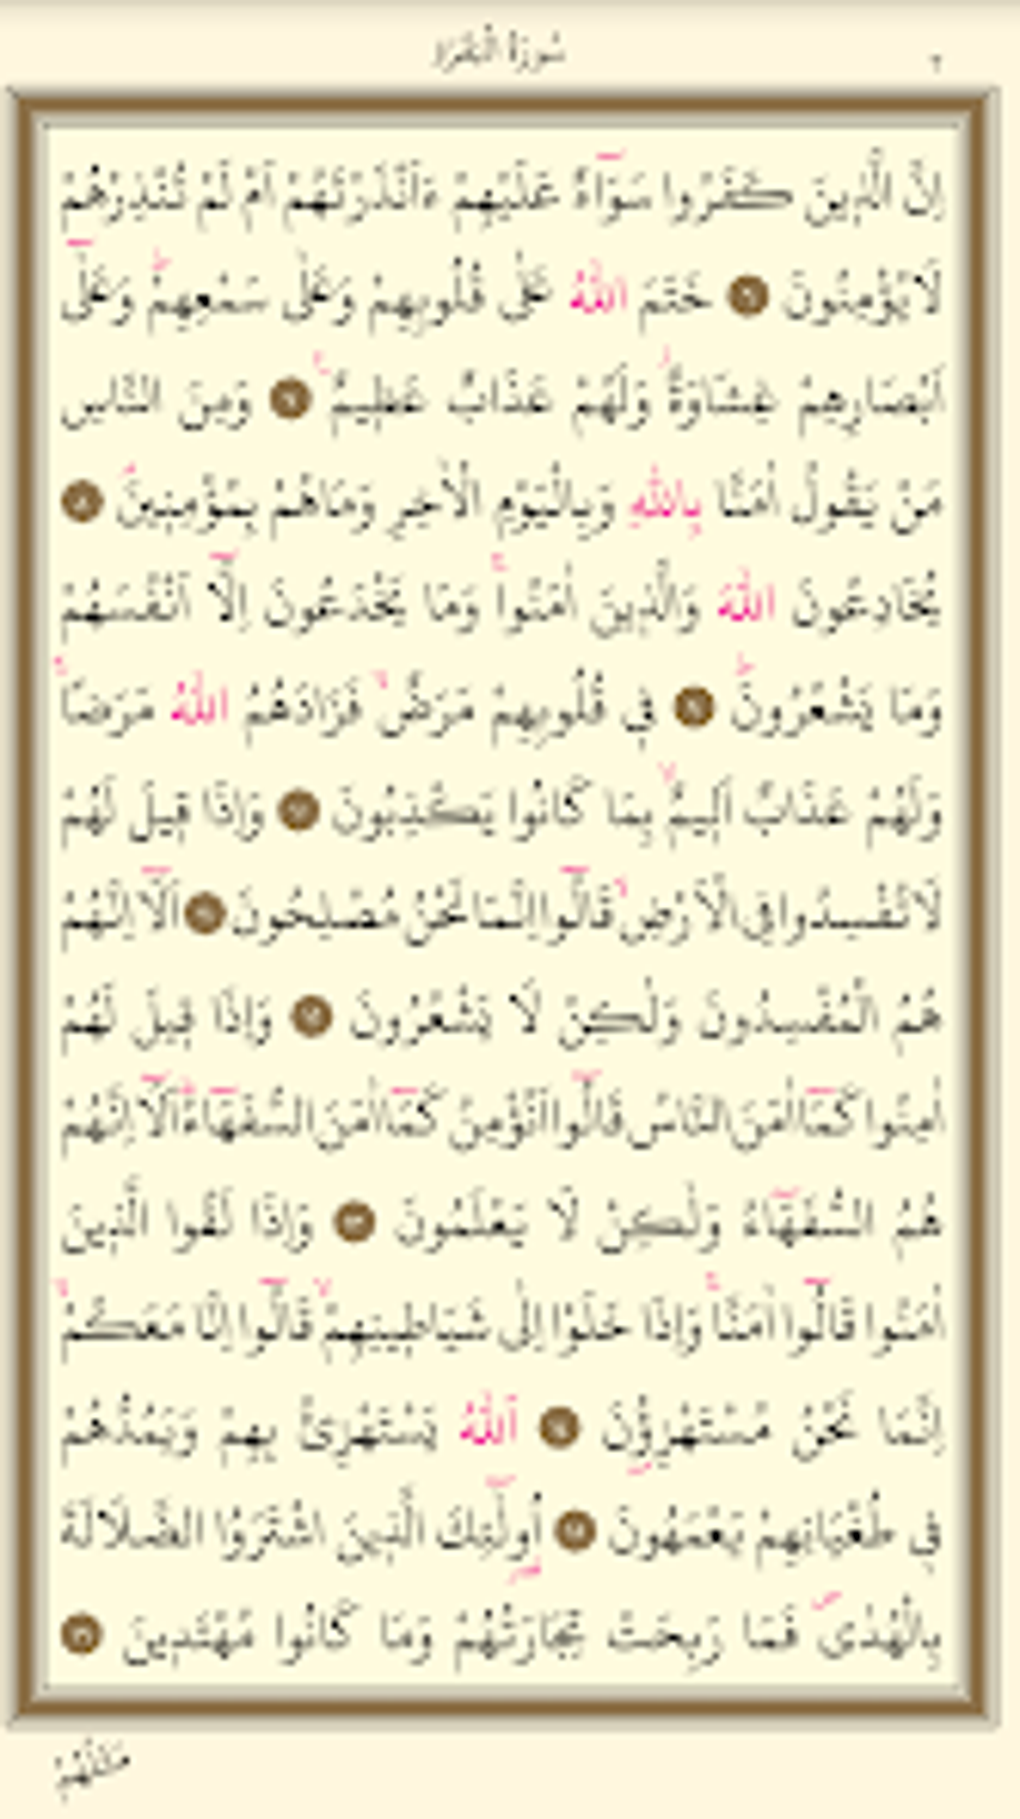 سُورَةُ الْبَقَرَةِ
اِنَّ الَّذٖينَ كَفَرُوا سَوَٓاءٌ عَلَيْهِمْ ءَاَنْذَرْتَهُمْ اَمْ لَمْ تُنْذِرْهُمْ
لَا يُؤْمِنُونَ ۝ خَتَمَ اللّٰهُ عَلٰى قُلُوبِهِمْ وَعَلٰى سَمْعِهِمْؕ وَعَلٰٓى
اَبْصَارِهِمْ غِشَاوَةٌؗ وَلَهُمْ عَذَابٌ عَظٖيمٌ ۝ وَمِنَ النَّاسِ
مَنْ يَقُولُ اٰمَنَّا بِاللّٰهِ وَبِالْيَوْمِ الْاٰخِرِ وَمَا هُمْ بِمُؤْمِنٖينَۘ ۝
يُخَادِعُونَ اللّٰهَ وَالَّذٖينَ اٰمَنُواۚ وَمَا يَخْدَعُونَ اِلَّٓا اَنْفُسَهُمْ
وَمَا يَشْعُرُونَؕ ۝ فٖي قُلُوبِهِمْ مَرَضٌۙ فَزَادَهُمُ اللّٰهُ مَرَضًاۚ
وَلَهُمْ عَذَابٌ اَلٖيمٌۙ بِمَا كَانُوا يَكْذِبُونَ ۝ وَاِذَا قٖيلَ لَهُمْ
لَا تُفْسِدُوا فِي الْاَرْضِۙ قَالُٓوا اِنَّمَا نَحْنُ مُصْلِحُونَ ۝ اَلَٓا اِنَّهُمْ
هُمُ الْمُفْسِدُونَ وَلٰكِنْ لَا يَشْعُرُونَ ۝ وَاِذَا قٖيلَ لَهُمْ
اٰمِنُوا كَمَٓا اٰمَنَ النَّاسُ قَالُٓوا اَنُؤْمِنُ كَمَٓا اٰمَنَ السُّفَهَٓاءُؕ اَلَٓا اِنَّهُمْ
هُمُ السُّفَهَٓاءُ وَلٰكِنْ لَا يَعْلَمُونَ ۝ وَاِذَا لَقُوا الَّذٖينَ
اٰمَنُوا قَالُٓوا اٰمَنَّاۚ وَاِذَا خَلَوْا اِلٰى شَيَاطٖينِهِمْۙ قَالُٓوا اِنَّا مَعَكُمْۙ
اِنَّمَا نَحْنُ مُسْتَهْزِؤُنَ ۝ اَللّٰهُ يَسْتَهْزِئُ بِهِمْ وَيَمُدُّهُمْ
فٖي طُغْيَانِهِمْ يَعْمَهُونَ ۝ اُو۬لٰٓئِكَ الَّذٖينَ اشْتَرَوُا الضَّلَالَةَ
بِالْهُدٰىࣕ فَمَا رَبِحَتْ تِجَارَتُهُمْ وَمَا كَانُوا مُهْتَدٖينَ ۝
مَثَلُهُمْ